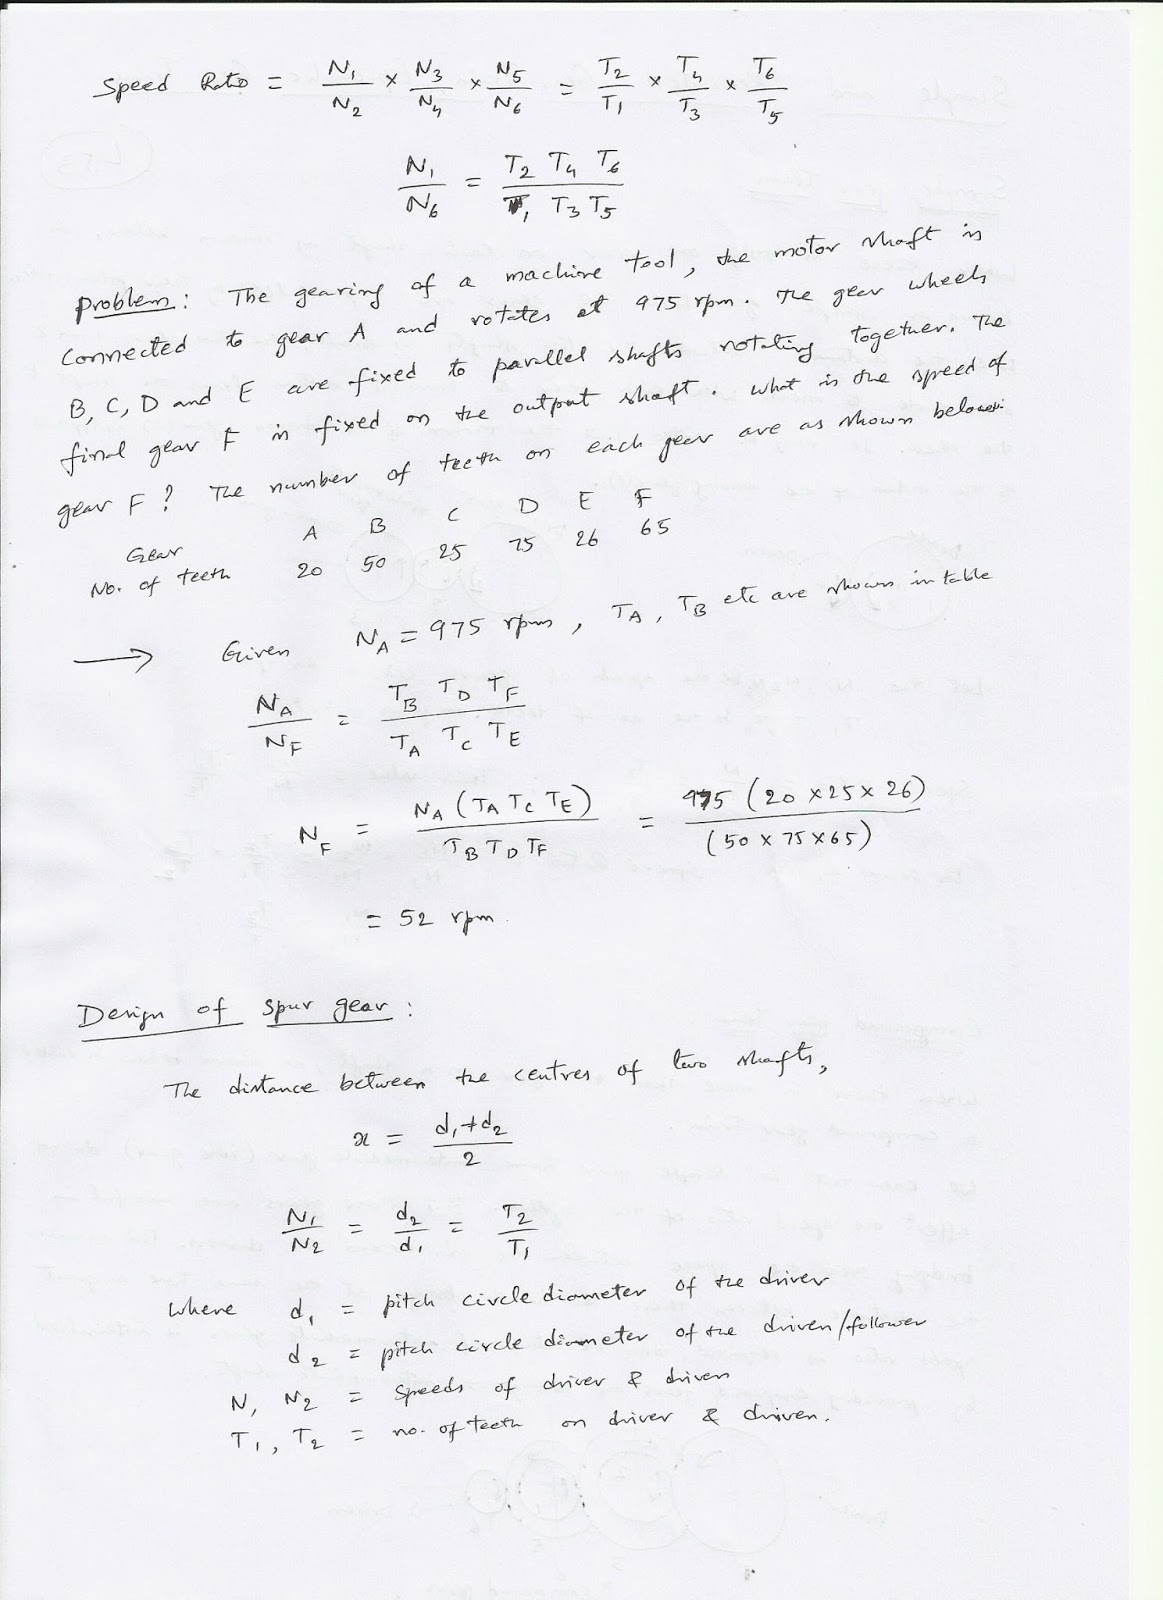 Speed Ratio = N1/N2 × N3/N4 × N5/N6 = T2/T1 × T4/T3 × T6/T5
N1/N6 = T2 T4 T6 / T1 T3 T5
Problem: The gearing of a machine tool, the motor shaft is
connected to gear A and rotates at 975 rpm. The gear wheels
B, C, D and E are fixed to parallel shafts rotating together. The
final gear F is fixed on the output shaft. What is the speed of
gear F? The number of teeth on each gear are as shown below:
Gear A B C D E F
No. of teeth 20 50 25 75 26 65
→ Given NA = 975 rpm, TA, TB etc are shown in table
NA/NF = TB TD TF / TA TC TE
NF = NA (TA TC TE) / TB TD TF = 975 (20 × 25 × 26) / (50 × 75 × 65)
= 52 rpm.
Design of spur gear:
The distance between the centres of two shafts,
x = d1+d2 / 2
N1/N2 = d2/d1 = T2/T1
where d1 = pitch circle diameter of the driver
d2 = pitch circle diameter of the driven/follower
N1 N2 = speeds of driver & driven
T1, T2 = no. of teeth on driver & driven.